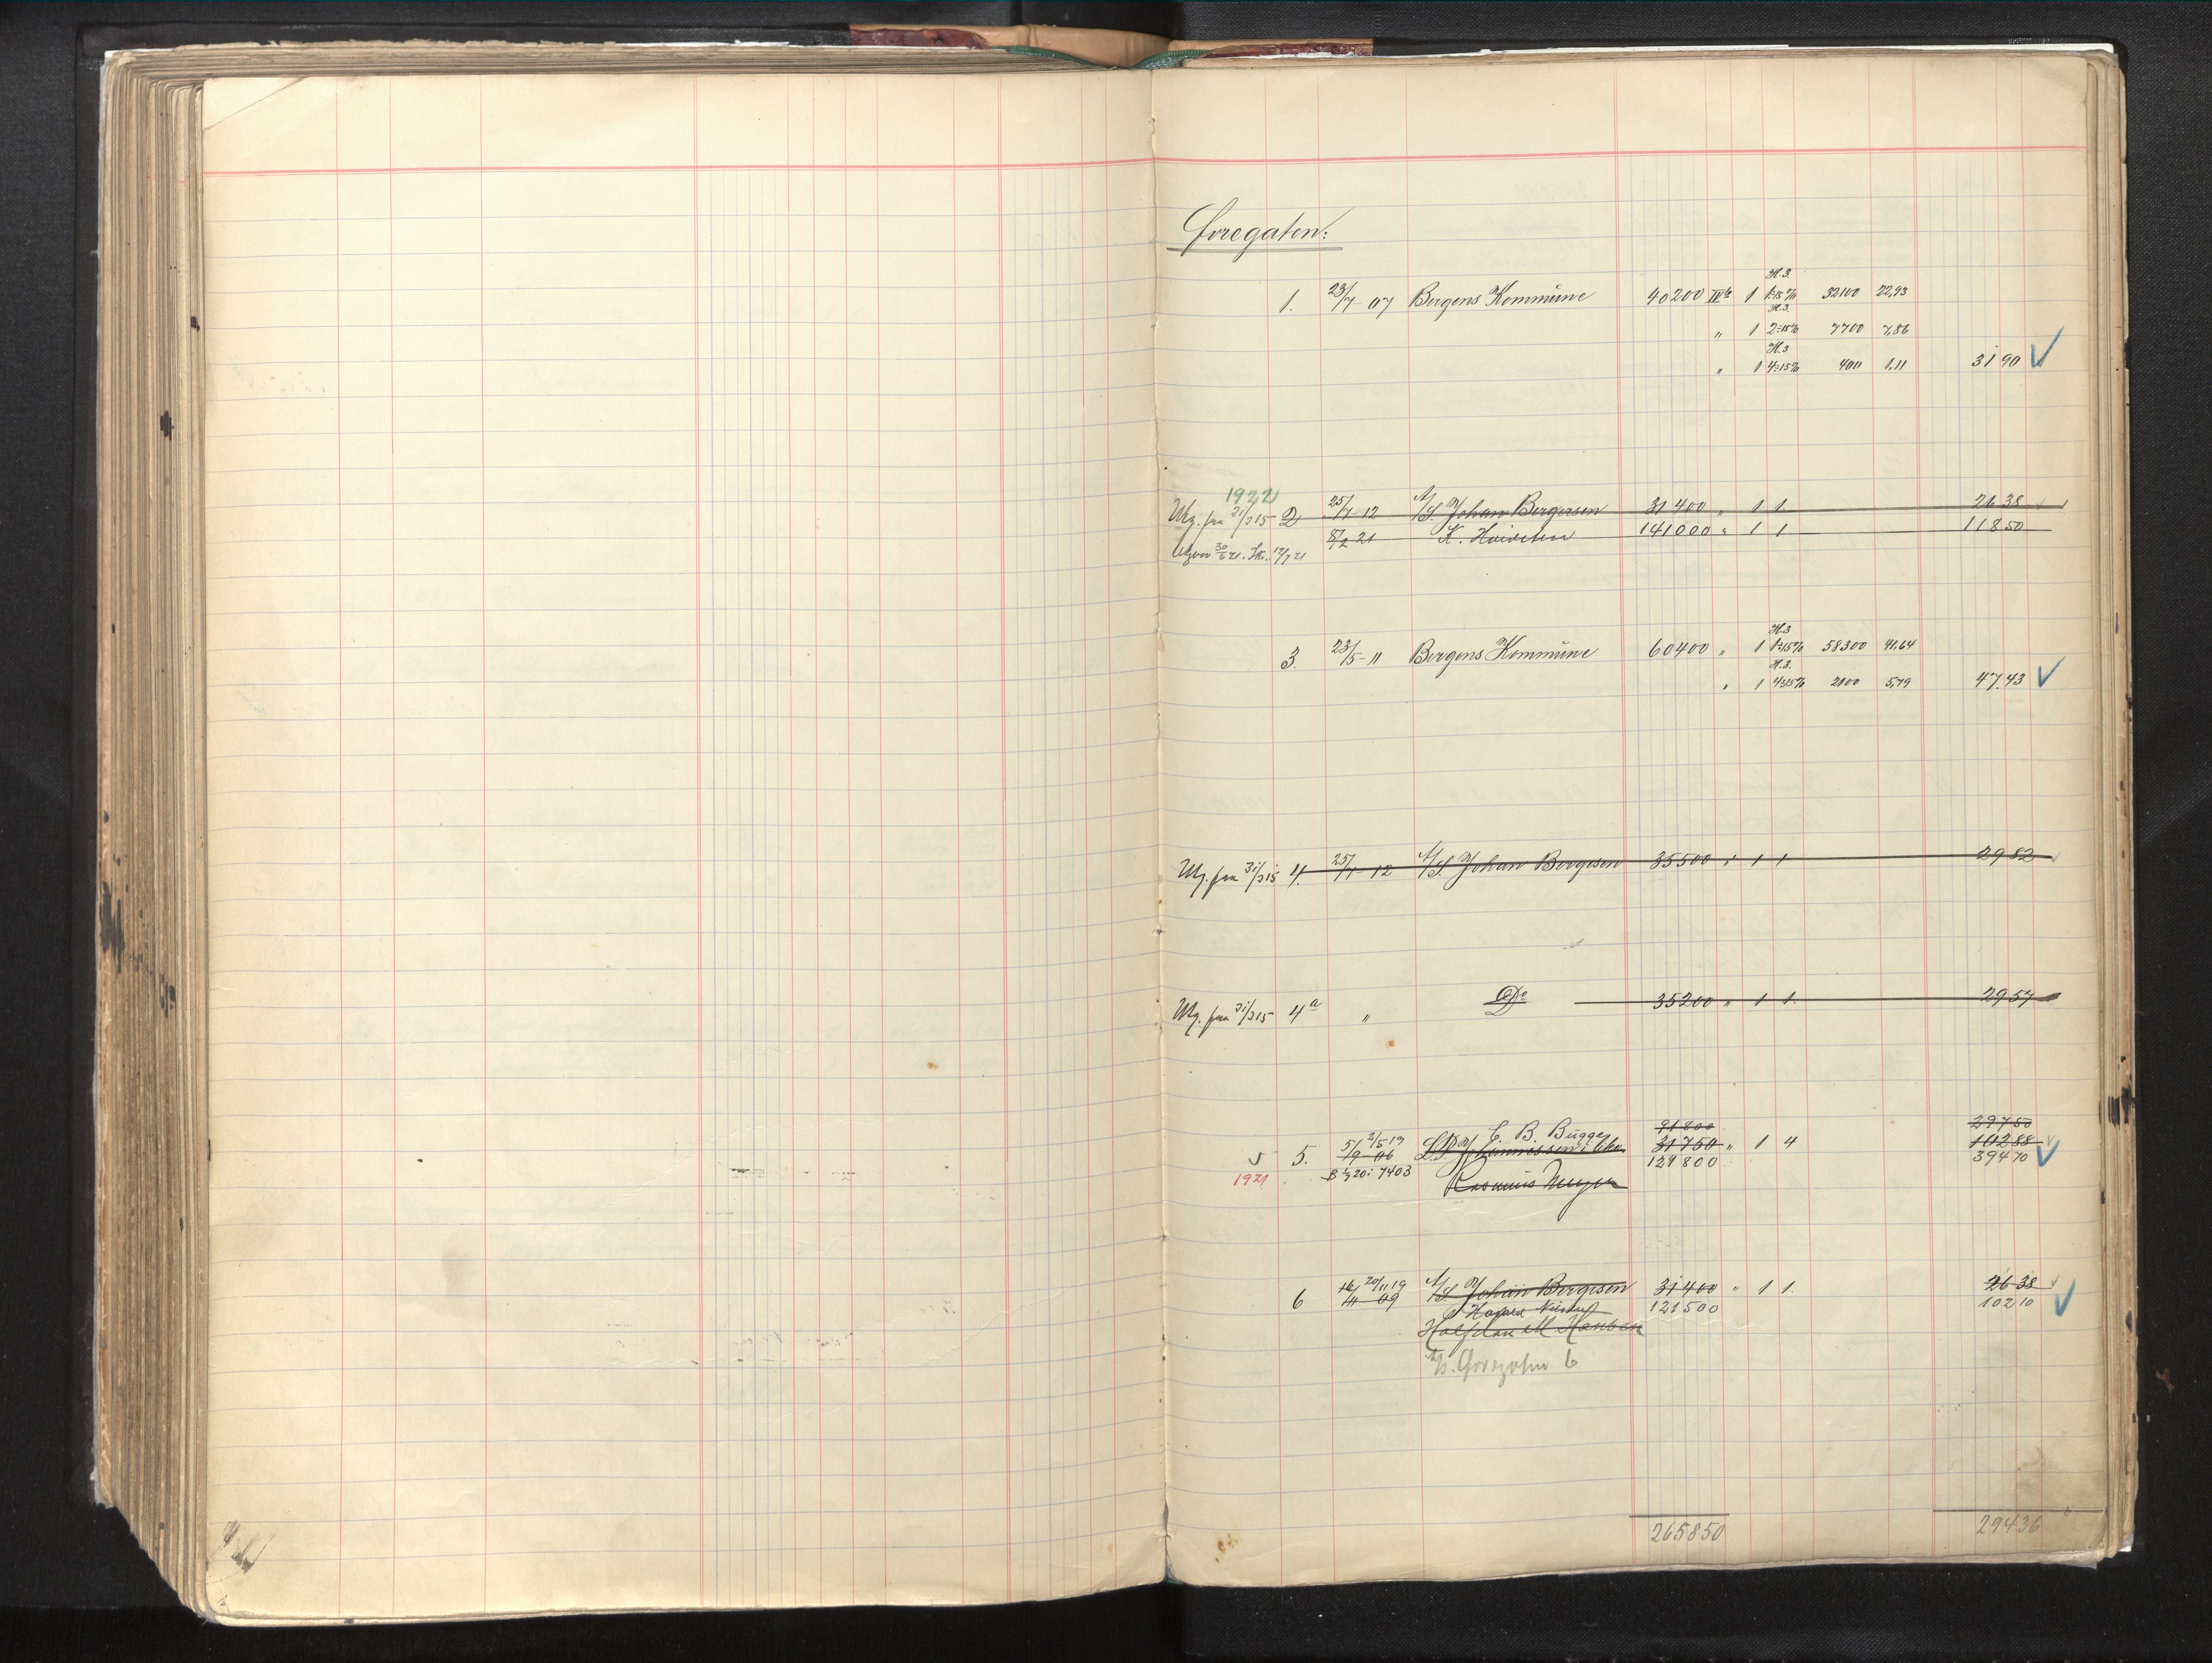 Øvregaten:
H.3.
1. 23/7-07 Bergens Kommune 40200 IVb 1 1÷15% 32100 22,93
H.3.
„ 1 2÷15% 7700 7,86
H.3
„ 1 4÷15% 400 1.11 31 90
1922
Utg. fra 31/3 15 2 25/1-12 A/S. Johan Bergesen 31400 „ 1 1. 26 38
8/2 21 141000 „ 1 1 118 50
30/6 21. 12/7 21
H.3
3. 23/5-11 Bergens Kommune 60400 „ 1 1÷15% 58300 41,64
H.3.
„ 1 4÷15% 2100 5,79 47.43
Utg. fra 31/3 15 4. 25/1-12 A/S. Johan Bergesen 35500 „ 1 1 29 82
Utg. fra 31/3 15 4a „ Do 35200 „ 1 1. 29 57
C. B. Bugge 91800 297 50
5. 5/9 06 2/5 19 31750 „ 1 4 102 88
1921 7403 124800 394 70
Rasmus Meyer
6 16/11 09 20/11 19 A/S Johan Bergesen 31400 „ 1 1. 26 38
121500 102 10
Halfdan M Hansen
A/S. Øvregaten 6
265850 294 36